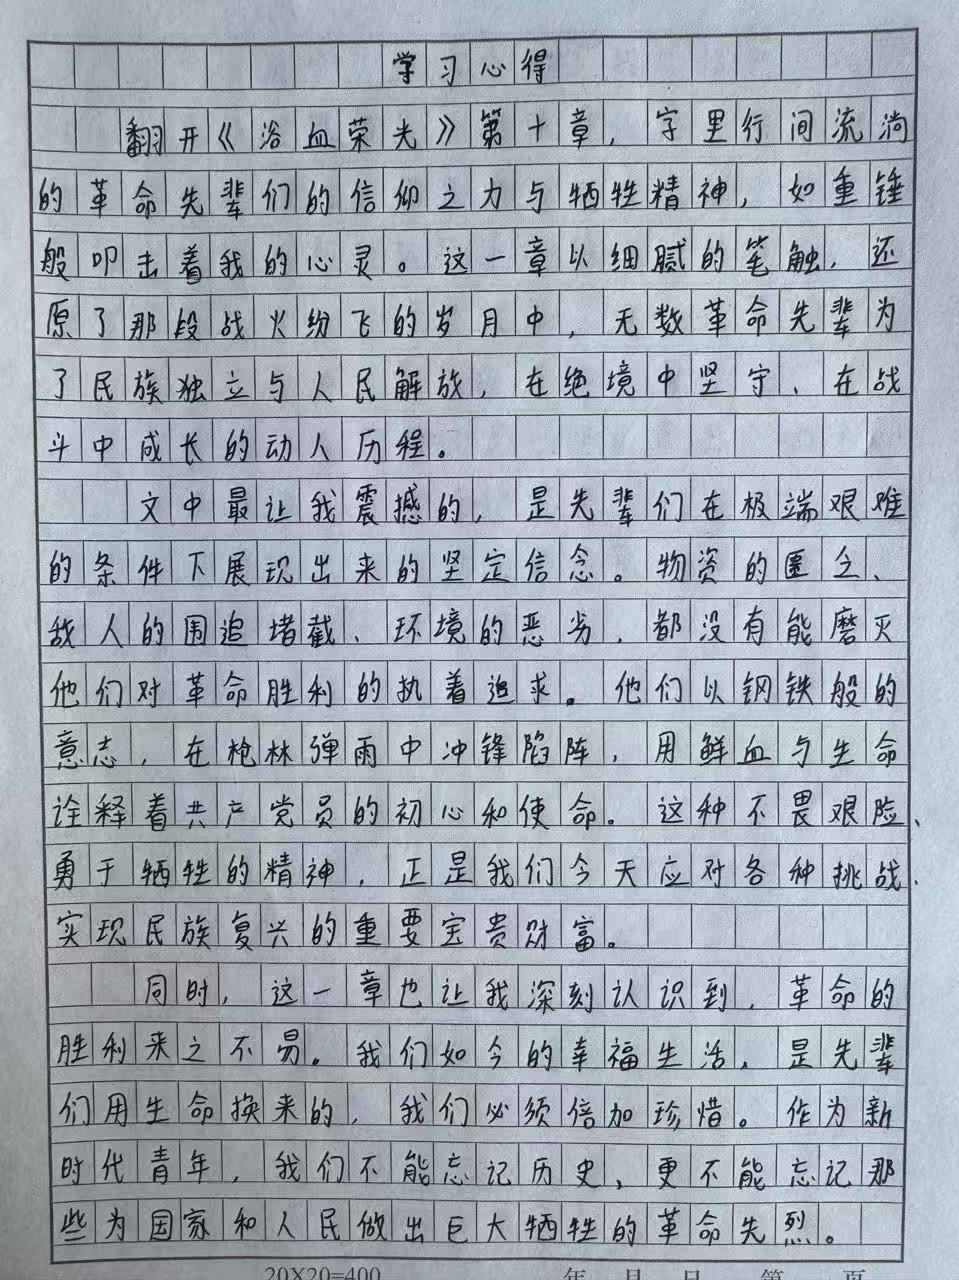 学习心得
翻开《浴血荣光》第十章，字里行间流淌
的革命先辈们的信仰之力与牺牲精神，如重锤
般叩击着我的心灵。这一章以细腻的笔触，还
原了那段战火纷飞的岁月中，无数革命先辈为
了民族独立与人民解放，在绝境中坚守、在战
斗中成长的动人历程。
文中最让我震撼的，是先辈们在极端艰难
的条件下展现出来的坚定信念。物资的匮乏、
敌人的围追堵截、环境的恶劣，都没有能磨灭
他们对革命胜利的执着追求。他们以钢铁般的
意志，在枪林弹雨中冲锋陷阵，用鲜血与生命
诠释着共产党员的初心和使命。这种不畏艰险、
勇于牺牲的精神，正是我们今天应对各种挑战、
实现民族复兴的重要宝贵财富。
同时，这一章也让我深刻认识到，革命的
胜利来之不易。我们如今的幸福生活，是先辈
们用生命换来的，我们必须倍加珍惜。作为新
时代青年，我们不能忘记历史，更不能忘记那
些为国家和人民做出巨大牺牲的革命先烈。
20X20=400 年 月 日 第 页